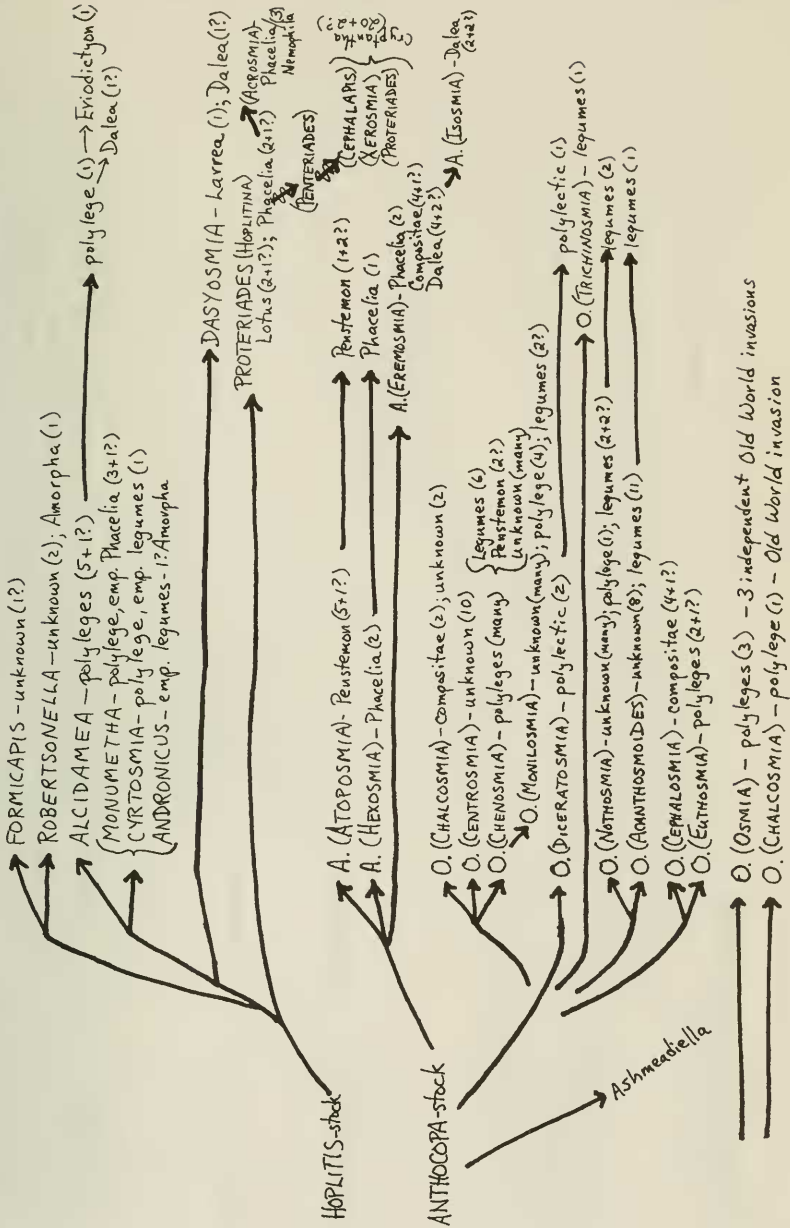 FORMICAPIS - unknown (1?)
ROBERTSONELLA - unknown (2); Amorpha (1)
ALCIDAMEA - polyleges (5+1?)
polylege (1) → Eriodictyon (1)
→ Dalea (1?)
{MONUMETHA - polylege, emp. Phacelia (3+1?)
CYRTOSMIA - polylege, emp. legumes (1)
ANDRONICUS - emp. legumes - 1? Amorpha
DASYOSMIA - Larrea (1); Dalea (1?)
PROTERIADES (HOPLITINA)
Lotus (2+1?); Phacelia (2+1?)
(ACROSMIA) -
Phacelia (3)
Nemophila
(PENTERIADES)
(CEPHALAPIS)
(XEROSMIA)
(PROTERIADES)
Cryptantha
(20+2?)
HOPLITIS-stock
A. (ATOPOSMIA) - Penstemon (5+1?)
Penstemon (1+2?)
A. (HEXOSMIA) - Phacelia (2)
Phacelia (1)
A. (EREMOSMIA) - Phacelia (2)
Compositae (4+1?)
Dalea (4+2?)
A. (ISOSMIA) - Dalea
(2+2?)
ANTHOCOPA-stock
O. (CHALCOSMIA) - compositae (2); unknown (2)
O. (CENTROSMIA) - unknown (10)
O. (CHENOSMIA) - polyleges (many)
{Legumes (6)
Penstemon (2?)
unknown (many)
O. (MONILOSMIA) - unknown (many); polylege (4); legumes (2?)
O. (DICERATOSMIA) - polylectic (2)
polylectic (1)
O. (TRICHINOSMIA) - legumes (1)
O. (NOTHOSMIA) - unknown (many); polylege (1); legumes (2+2?)
legumes (2)
O. (ACANTHOSMOIDES) - unknown (8); legumes (11)
legumes (1)
O. (CEPHALOSMIA) - compositae (4+1?)
O. (EUTHOSMIA) - polyleges (2+1?)
Ashmeadiella
O. (OSMIA) - polyleges (3) - 3 independent Old World invasions
O. (CHALCOSMIA) - polylege (1) - Old World invasion